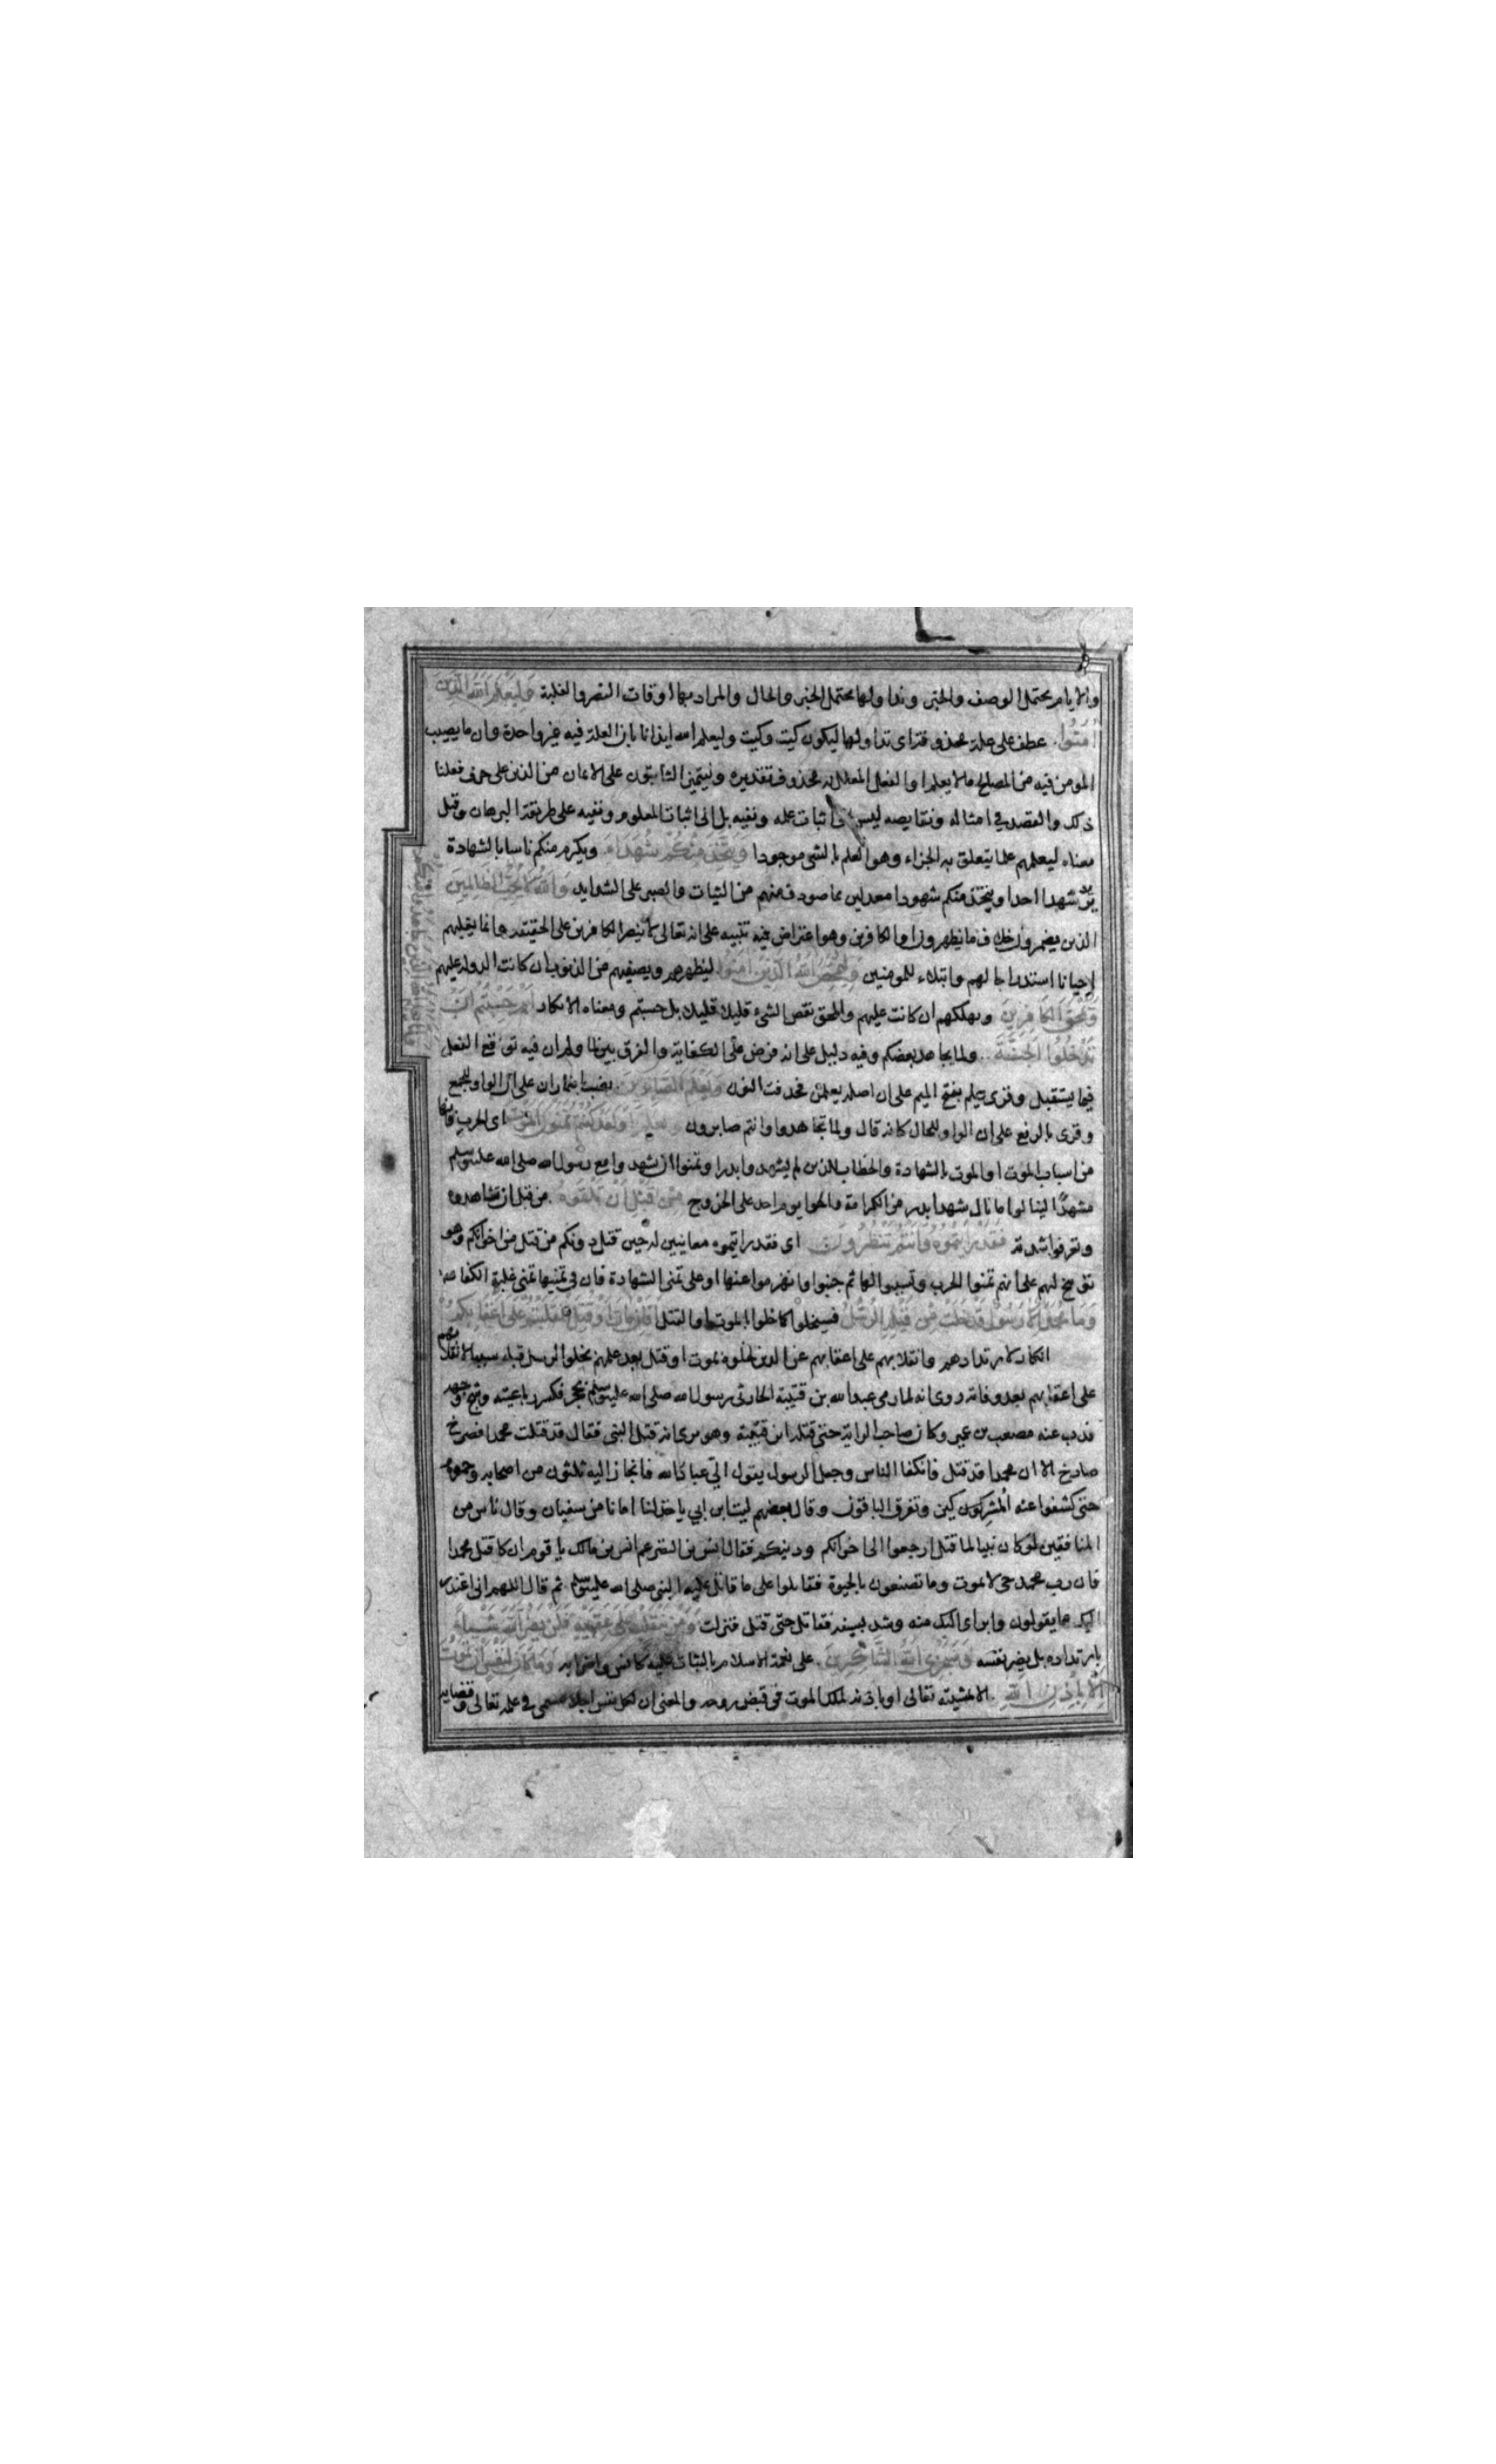 والايام يحتمل الوصف والخبر ونداولها يحتمل الخبر والحال والمراد بها اوقات النصر والغلبة وليعلم الله الذين
امنوا عطف على علة محذوفة اى نداولها ليكون كيت وكيت وليعلم الله ايذانا بان العلة فيه غير واحدة وان ما يصيب
المومن فيه من المصالح ما لا يعلم او الفعل المعلل به محذوف تقديره وليتميز الثابتون على الايمان من الذين على حرف فعلنا
ذلك والقصد في امثاله ونقايضه ليس الى اثبات علمه ونفيه بل الى اثبات المعلوم ونفيه على طريقة البرهان وقيل
معناه ليعلمهم علما يتعلق به الجزاء وهو العلم بالشئ موجودا ويتخذ منكم شهداء ويكرم منكم ناسا بالشهادة
يريد شهدا احد او يتخذ منكم شهودا معدلين بما صودف منهم من الثبات والصبر على الشدايد والله لا يحب الظالمين
الذين يضمرون خلاف ما يظهرون او الكافرين وهو اعتراض فيه تنبيه على انه تعالى لا ينصر الكافرين على الحقيقة وانما يغلبهم
احيانا استدراجا لهم وابتلاء للمومنين وليمحص الله الذين امنوا ليطهرهم ويصفيهم من الذنوب ان كانت الدولة عليهم
ويمحق الكافرين ويهلكهم ان كانت عليهم والمحق نقص الشئ قليلا قليلا بل حسبتم ومعناه الانكار ام حسبتم ان
تدخلوا الجنة ولما يجاهد بعضكم وفيه دليل على انه فرض على الكفاية والفرق بين لما ولم ان فيه توقع الفعل
فيما يستقبل وقرى يعلم بفتح الميم على ان اصله يعلمن فحذفت النون ويعلم الصابرين نصب باضمار ان على ان الواو للجمع
وقرى بالرفع على ان الواو للحال كانه قال ولما تجاهدوا وانتم صابرون ولقد كنتم تمنون الموت اى الحرب فانها
من اسباب الموت او الموت بالشهادة والخطاب للذين لم يشهدوا بدرا وتمنوا ان يشهدوا مع رسول الله صلى الله عليه وسلم
مشهدا لينالوا ما نال شهدا بدر من الكرامة والحوا يوم احد على الخروج من قبل ان تلقوه من قبل ان تشاهدوه
وتعرفوا شدته فقد رايتموه وانتم تنظرون اى فقد رايتموه معاينين له حين قتل دونكم من قتل من اخوانكم وهو
توبيخ لهم على انهم تمنوا الحرب وتسببوا لها ثم جبنوا وانهزموا عنها او على تمنى الشهادة فان في تمنيها تمنى غلبة الكفار
وما محمد الا رسول قد خلت من قبله الرسل فسيخلوا كما خلوا بالموت او القتل افان مات او قتل انقلبتم على اعقابكم
انكار لارتدادهم وانقلابهم على اعقابهم عن الدين لخلوه بموت او قتل بعد علمهم بخلوا الرسل قبله سببا لانقلابهم
على اعقابهم بعد وفاته روى انه لما رمى عبد الله بن قتيبة الحارثى رسول الله صلى الله عليه وسلم بحجر فكسر رباعيته وشج وجهه
فذب عنه مصعب بن عمير وكان صاحب الراية حتى قتله ابن قميئة وهو يرى انه قتل النبى فقال قد قتلت محمدا فصرخ
صارخ الا ان محمدا قد قتل فانكفا الناس وجعل الرسول يقول الى عباد الله فانحاز اليه ثلثون من اصحابه وحموه
حتى كشفوا عنه المشركين وتفرق الباقون وقال بعضهم ليت ابن ابي ياخذ لنا امانا من سفيان وقال ناس من
المنافقين لو كان نبيا لما قتل ارجعوا الى اخوانكم ودينكم فقال انس بن النضر عم انس بن مالك يا قوم ان كان قتل محمدا
فان رب محمد حى لا يموت وما تصنعون بالحيوة فقاتلوا على ما قاتل عليه النبى صلى الله عليه وسلم ثم قال اللهم انى اعتذر
اليك مما يقولون وابراى اليك منه وشد بسيفه فقاتل حتى قتل فنزلت ومن ينقلب على عقبيه فلن يضر الله شيئا
بارتداده بل يضر نفسه وسيجزى الله الشاكرين على نعمة الاسلام بالثبات عليه كانس واضرابه وما كان لنفس ان تموت
الا باذن الله الا بمشيته تعالى او باذنه لملك الموت فى قبض روحه والمعنى ان لكل نفس اجلا مسمى في علمه تعالى وقضايه